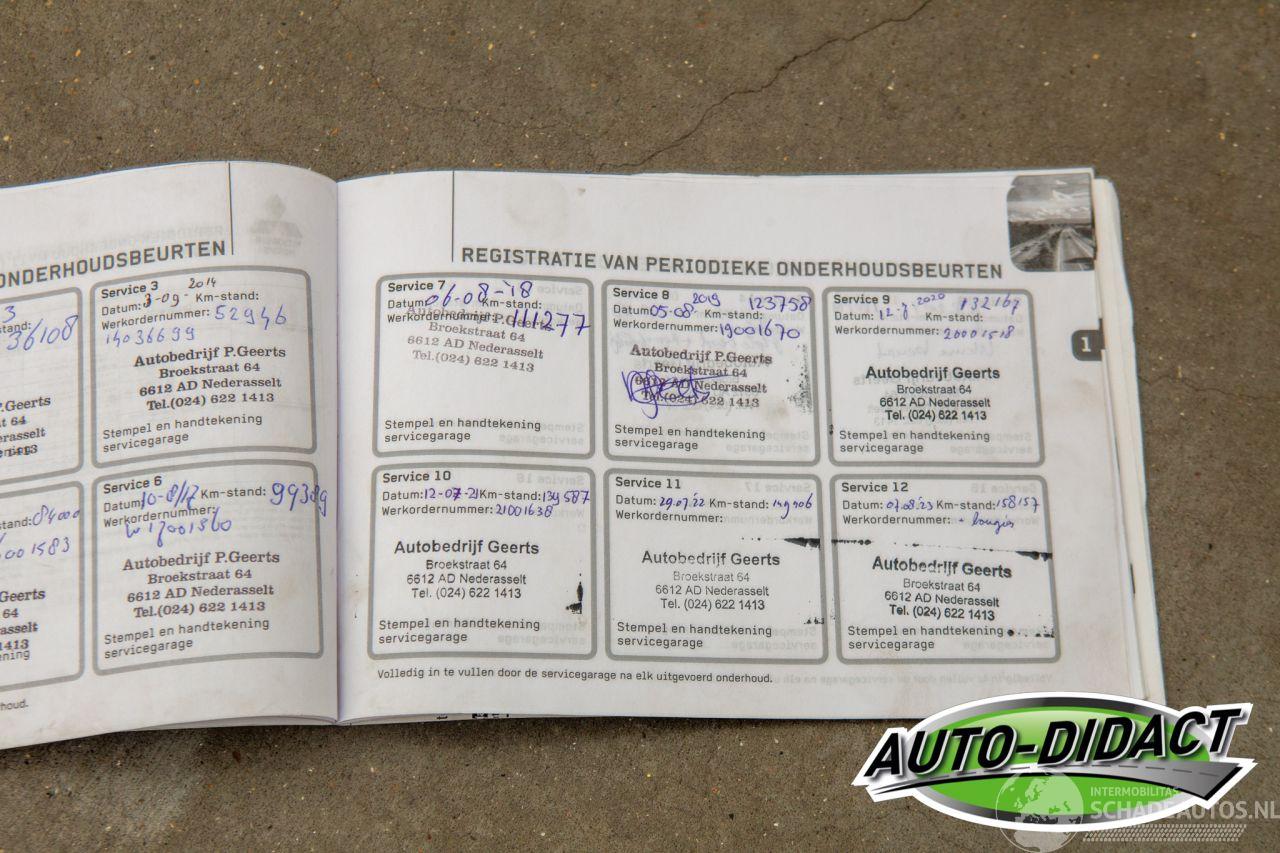 ONDERHOUDSBEURTEN
3
36108
Service 3
2014
Datum: 3-09- Km-stand:
Werkordernummer: 52946
14036699
Autobedrijf P.Geerts
Broekstraat 64
6612 AD Nederasselt
Tel.(024) 622 1413
Stempel en handtekening
servicegarage
P.Geerts
64
asselt
1413
tand: 84000
001583
Geerts
64
asselt
1413
ening
houd.
Service 6
Datum: 10-8/17 Km-stand: 99389
Werkordernummer:
17001560
Autobedrijf P.Geerts
Broekstraat 64
6612 AD Nederasselt
Tel.(024) 622 1413
Stempel en handtekening
servicegarage
REGISTRATIE VAN PERIODIEKE ONDERHOUDSBEURTEN
Service 7
Datum: 06-08-'18 Km-stand:
Werkordernummer: 111277
Autobedrijf P.Geerts
Broekstraat 64
6612 AD Nederasselt
Tel.(024) 622 1413
Stempel en handtekening
servicegarage
Service 8
2019 123758
Datum: 05-08- Km-stand:
Werkordernummer: 19001670
Autobedrijf P.Geerts
Broekstraat 64
6612 AD Nederasselt
Tel.(024) 622 1413
Stempel en handtekening
servicegarage
Service 9
132167
Datum: 12-7-2020 Km-stand:
Werkordernummer: 20001518
Autobedrijf Geerts
Broekstraat 64
6612 AD Nederasselt
Tel. (024) 622 1413
Stempel en handtekening
servicegarage
1
Service 10
Datum: 12-07-21 Km-stand: 139587
Werkordernummer: 21001638
Autobedrijf Geerts
Broekstraat 64
6612 AD Nederasselt
Tel. (024) 622 1413
Stempel en handtekening
servicegarage
Service 11
Datum: 29.07.'22 Km-stand: 149906
Werkordernummer:
Autobedrijf Geerts
Broekstraat 64
6612 AD Nederasselt
Tel. (024) 622 1413
Stempel en handtekening
servicegarage
Service 12
Datum: 07.08.'23 Km-stand: 158157
Werkordernummer: + bougies
Autobedrijf Geerts
Broekstraat 64
6612 AD Nederasselt
Tel. (024) 622 1413
Stempel en handtekening
servicegarage
Volledig in te vullen door de servicegarage na elk uitgevoerd onderhoud.
AUTO-DIDACT
INTERMOBILITAS
SCHADEAUTOS.NL